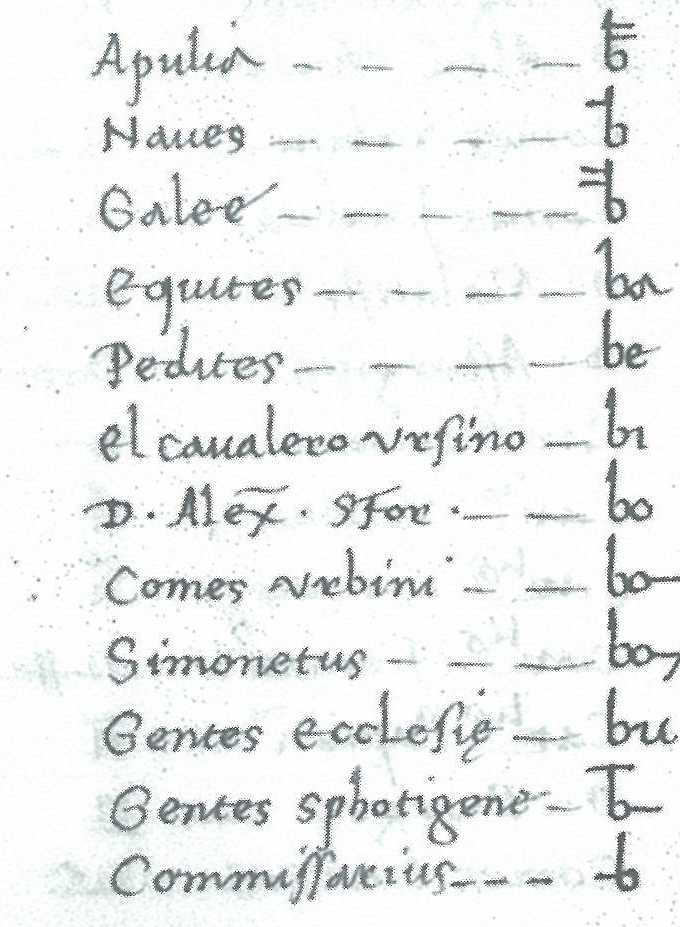 Apulia - - - - b
Naues - - - - b
Galee - - - - - b
equites - - - - ba
Pedites - - - - be
el caualero vrsino - bi
D. Alex̄. Sfor. - - bo
Comes vrbini - - bo-
Simonetus - - - bo
Gentes ecclesię - bu
Gentes sphotigene - b-
Commissarius - - - b